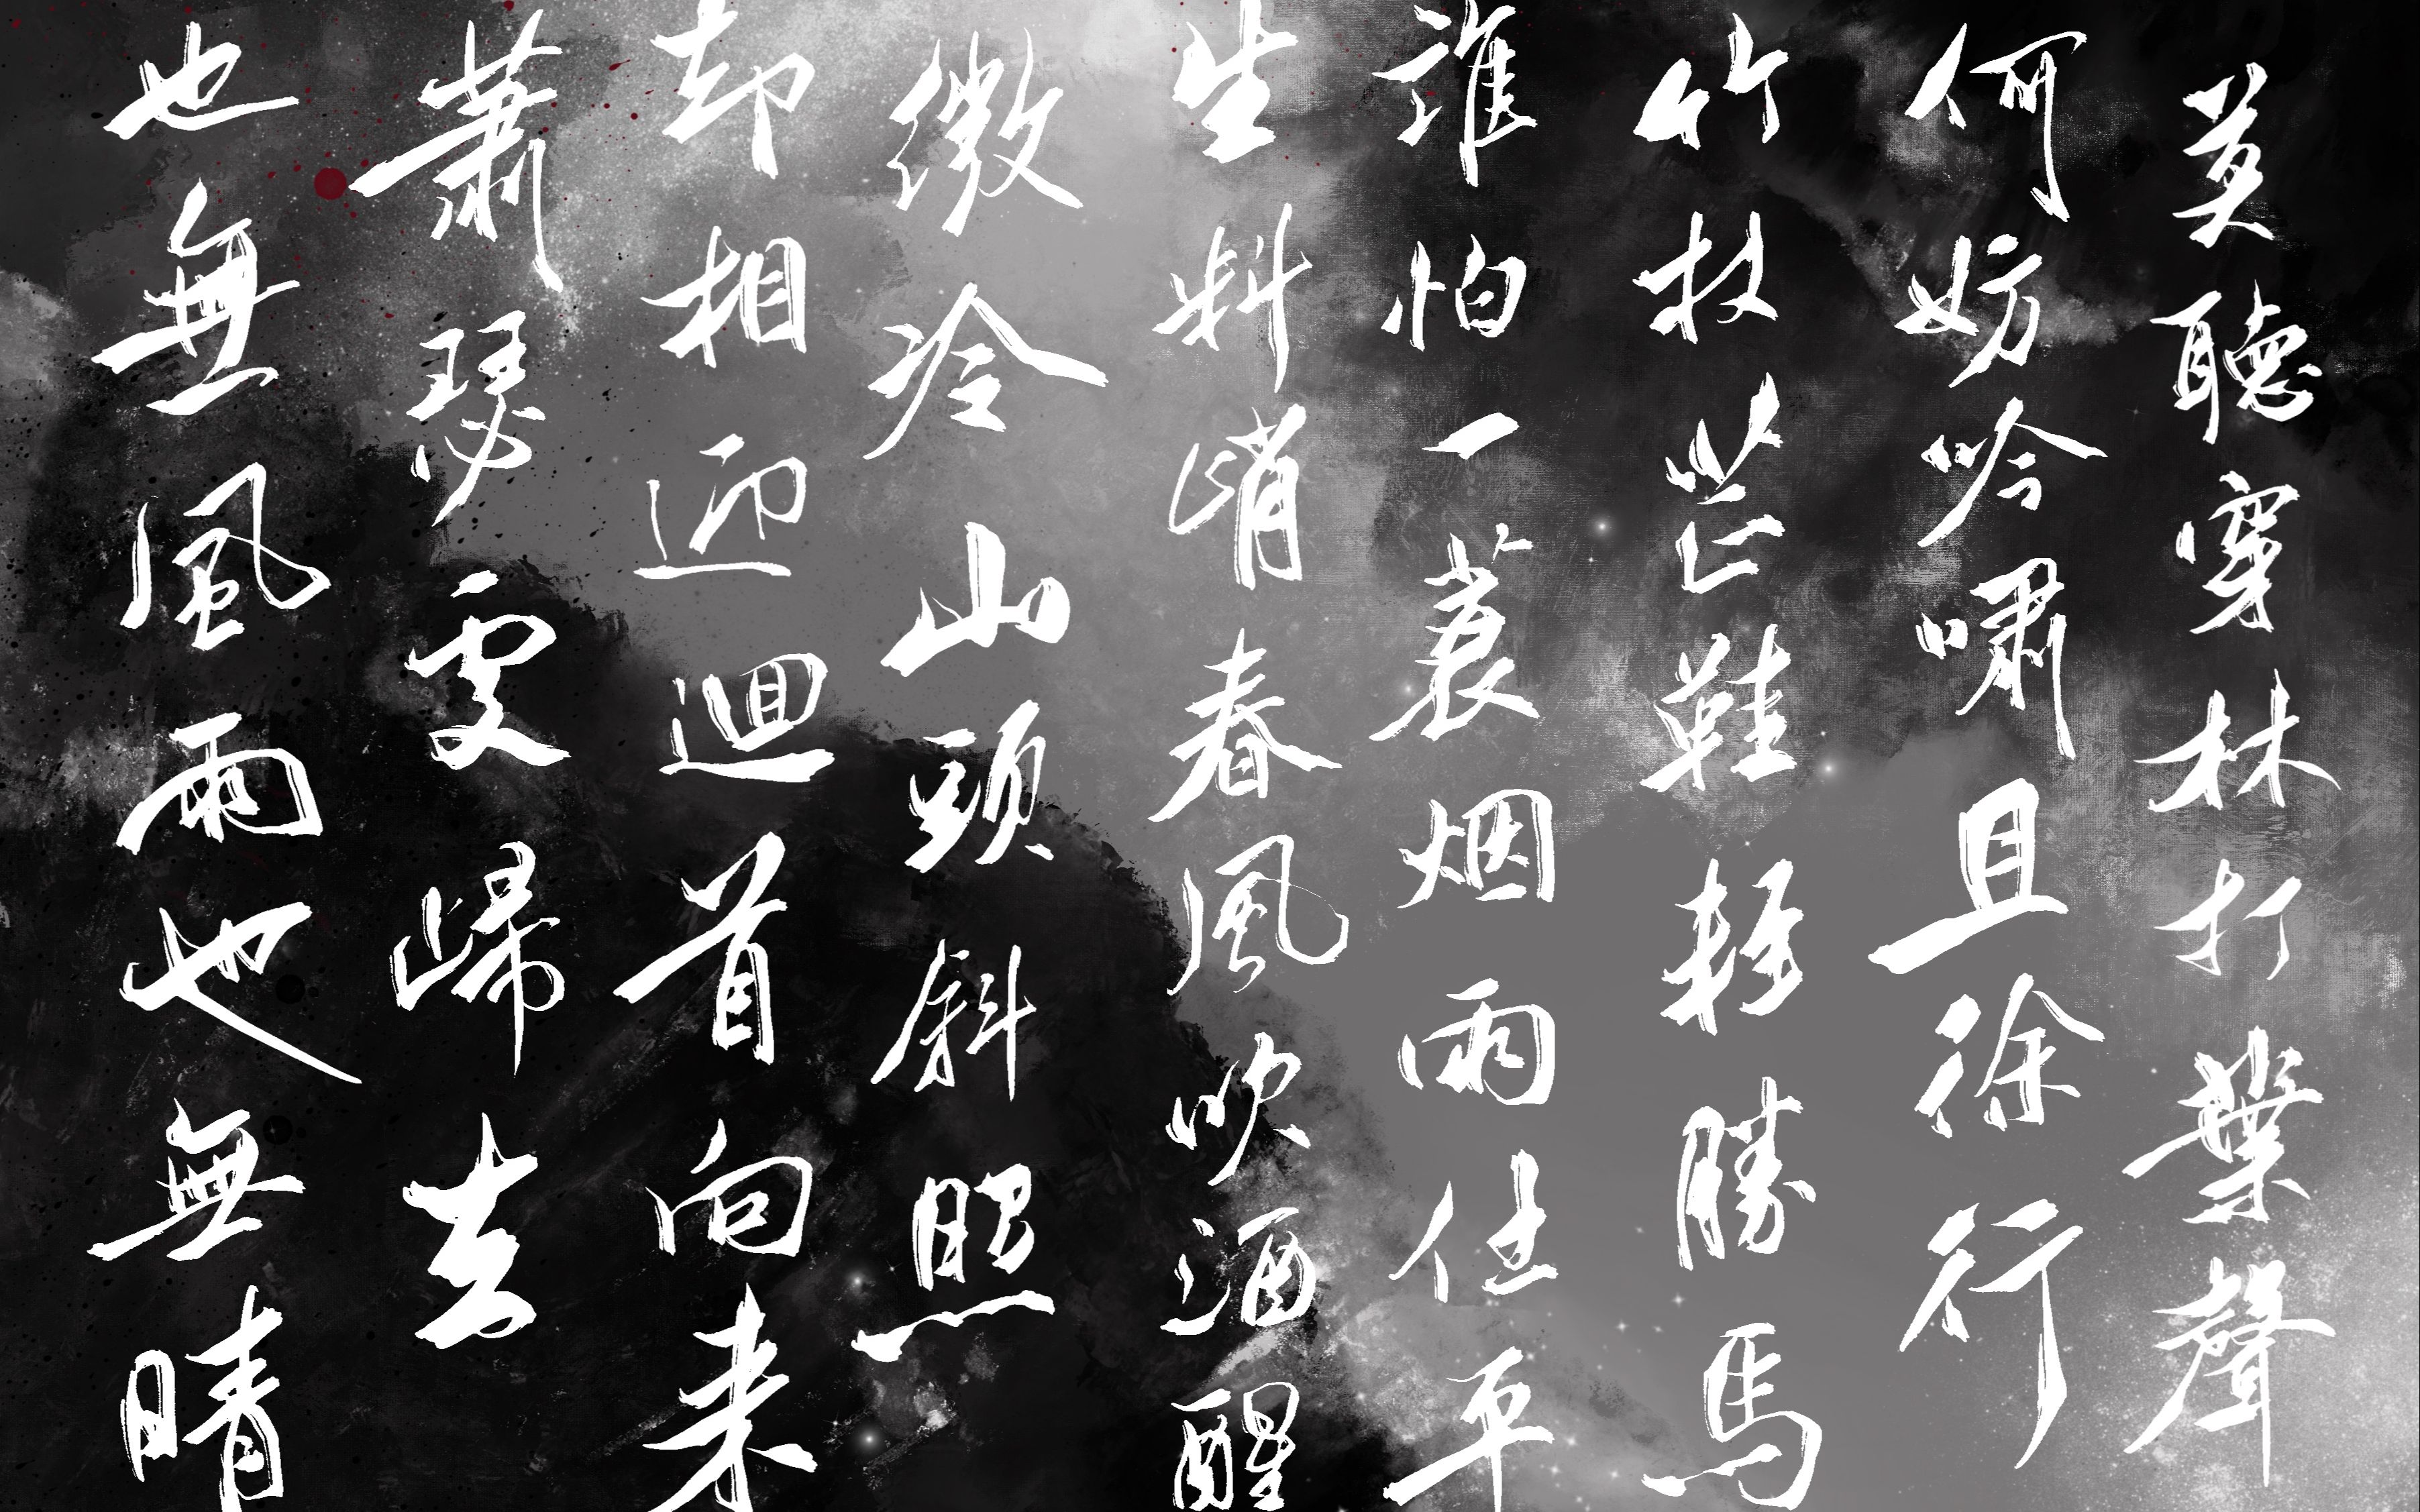 莫聽穿林打葉聲
何妨吟嘯且徐行
竹杖芒鞋輕勝馬
誰怕一蓑烟雨任平
生料峭春風吹酒醒
微冷山頭斜照
却相迎迴首向来
蕭瑟處歸去
也無風雨也無晴